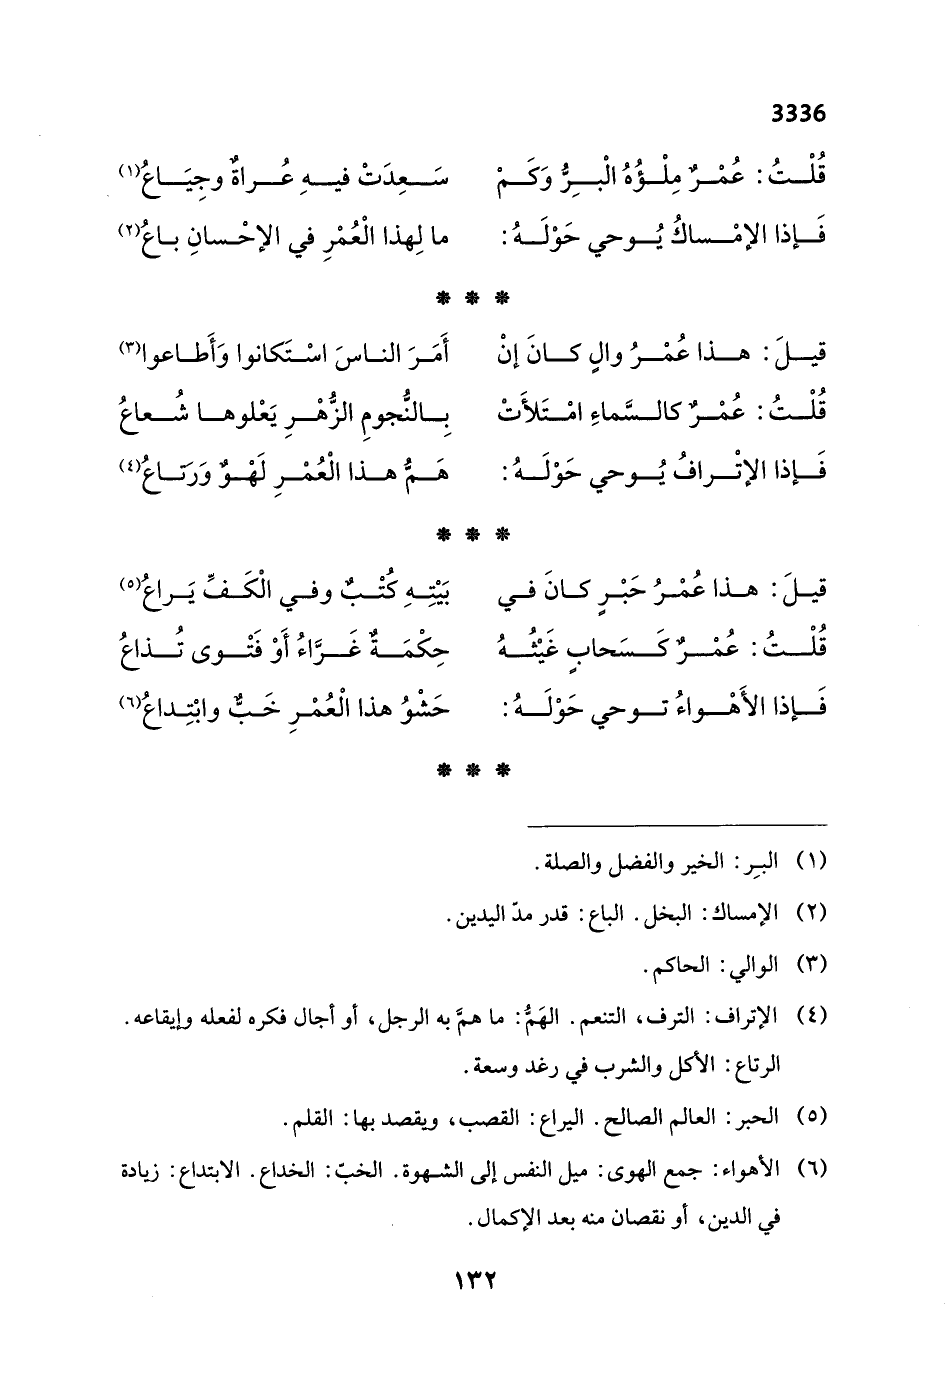 3336
قُلْتُ : عُمْرٌ مِلْؤُهُ الْبِرُّ وَكَمْ سَعِدَتْ فيهِ عُراةٌ وجِيَاعُ(١)
فَإذا الإمْساكُ يُوحي حَوْلَهُ : ما لِهذا الْعُمْرِ في الإحْسانِ باعُ(٢)
* * *
قيلَ : هذا عُمْرُ والٍ كانَ إنْ أَمَرَ الناسَ اسْتَكانوا وَأَطاعوا(٣)
قُلْتُ : عُمْرٌ كالسَّماءِ امْتَلأَتْ بِالنُّجومِ الزُّهْرِ يَعْلوها شُعاعُ
فَإذا الإتْرافُ يُوحي حَوْلَهُ : هَمُّ هذا الْعُمْرِ لَهْوٌ وَرَتاعُ(٤)
* * *
قيلَ : هذا عُمْرُ حَبْرٍ كانَ في بَيْتِهِ كُتْبٌ وفي الْكَفِّ يَراعُ(٥)
قُلْتُ : عُمْرٌ كَسَحابٍ غَيْثُهُ حِكْمَةٌ غَرَّاءُ أَوْ فَتْوى تُذاعُ
فَإذا الأَهْواءُ توحي حَوْلَهُ : حَشْوُ هذا الْعُمْرِ خَبٌّ وابْتِداعُ(٦)
* * *
(١) البـِر : الخير والفضل والصلة .
(٢) الإمساك : البخل . الباع : قدر مدّ اليدين .
(٣) الوالي : الحاكم .
(٤) الإتراف : الترف ، التنعم . الهَمُّ : ما همَّ به الرجل ، أو أجال فكره لفعله وإيقاعه .
الرتاع : الأكل والشرب في رغد وسعة .
(٥) الحبر : العالم الصالح . اليراع : القصب ، ويقصد بها : القلم .
(٦) الأهواء : جمع الهوى : ميل النفس إلى الشهوة . الخبّ : الخداع . الابتداع : زيادة
في الدين ، أو نقصان منه بعد الإكمال .
١٣٢